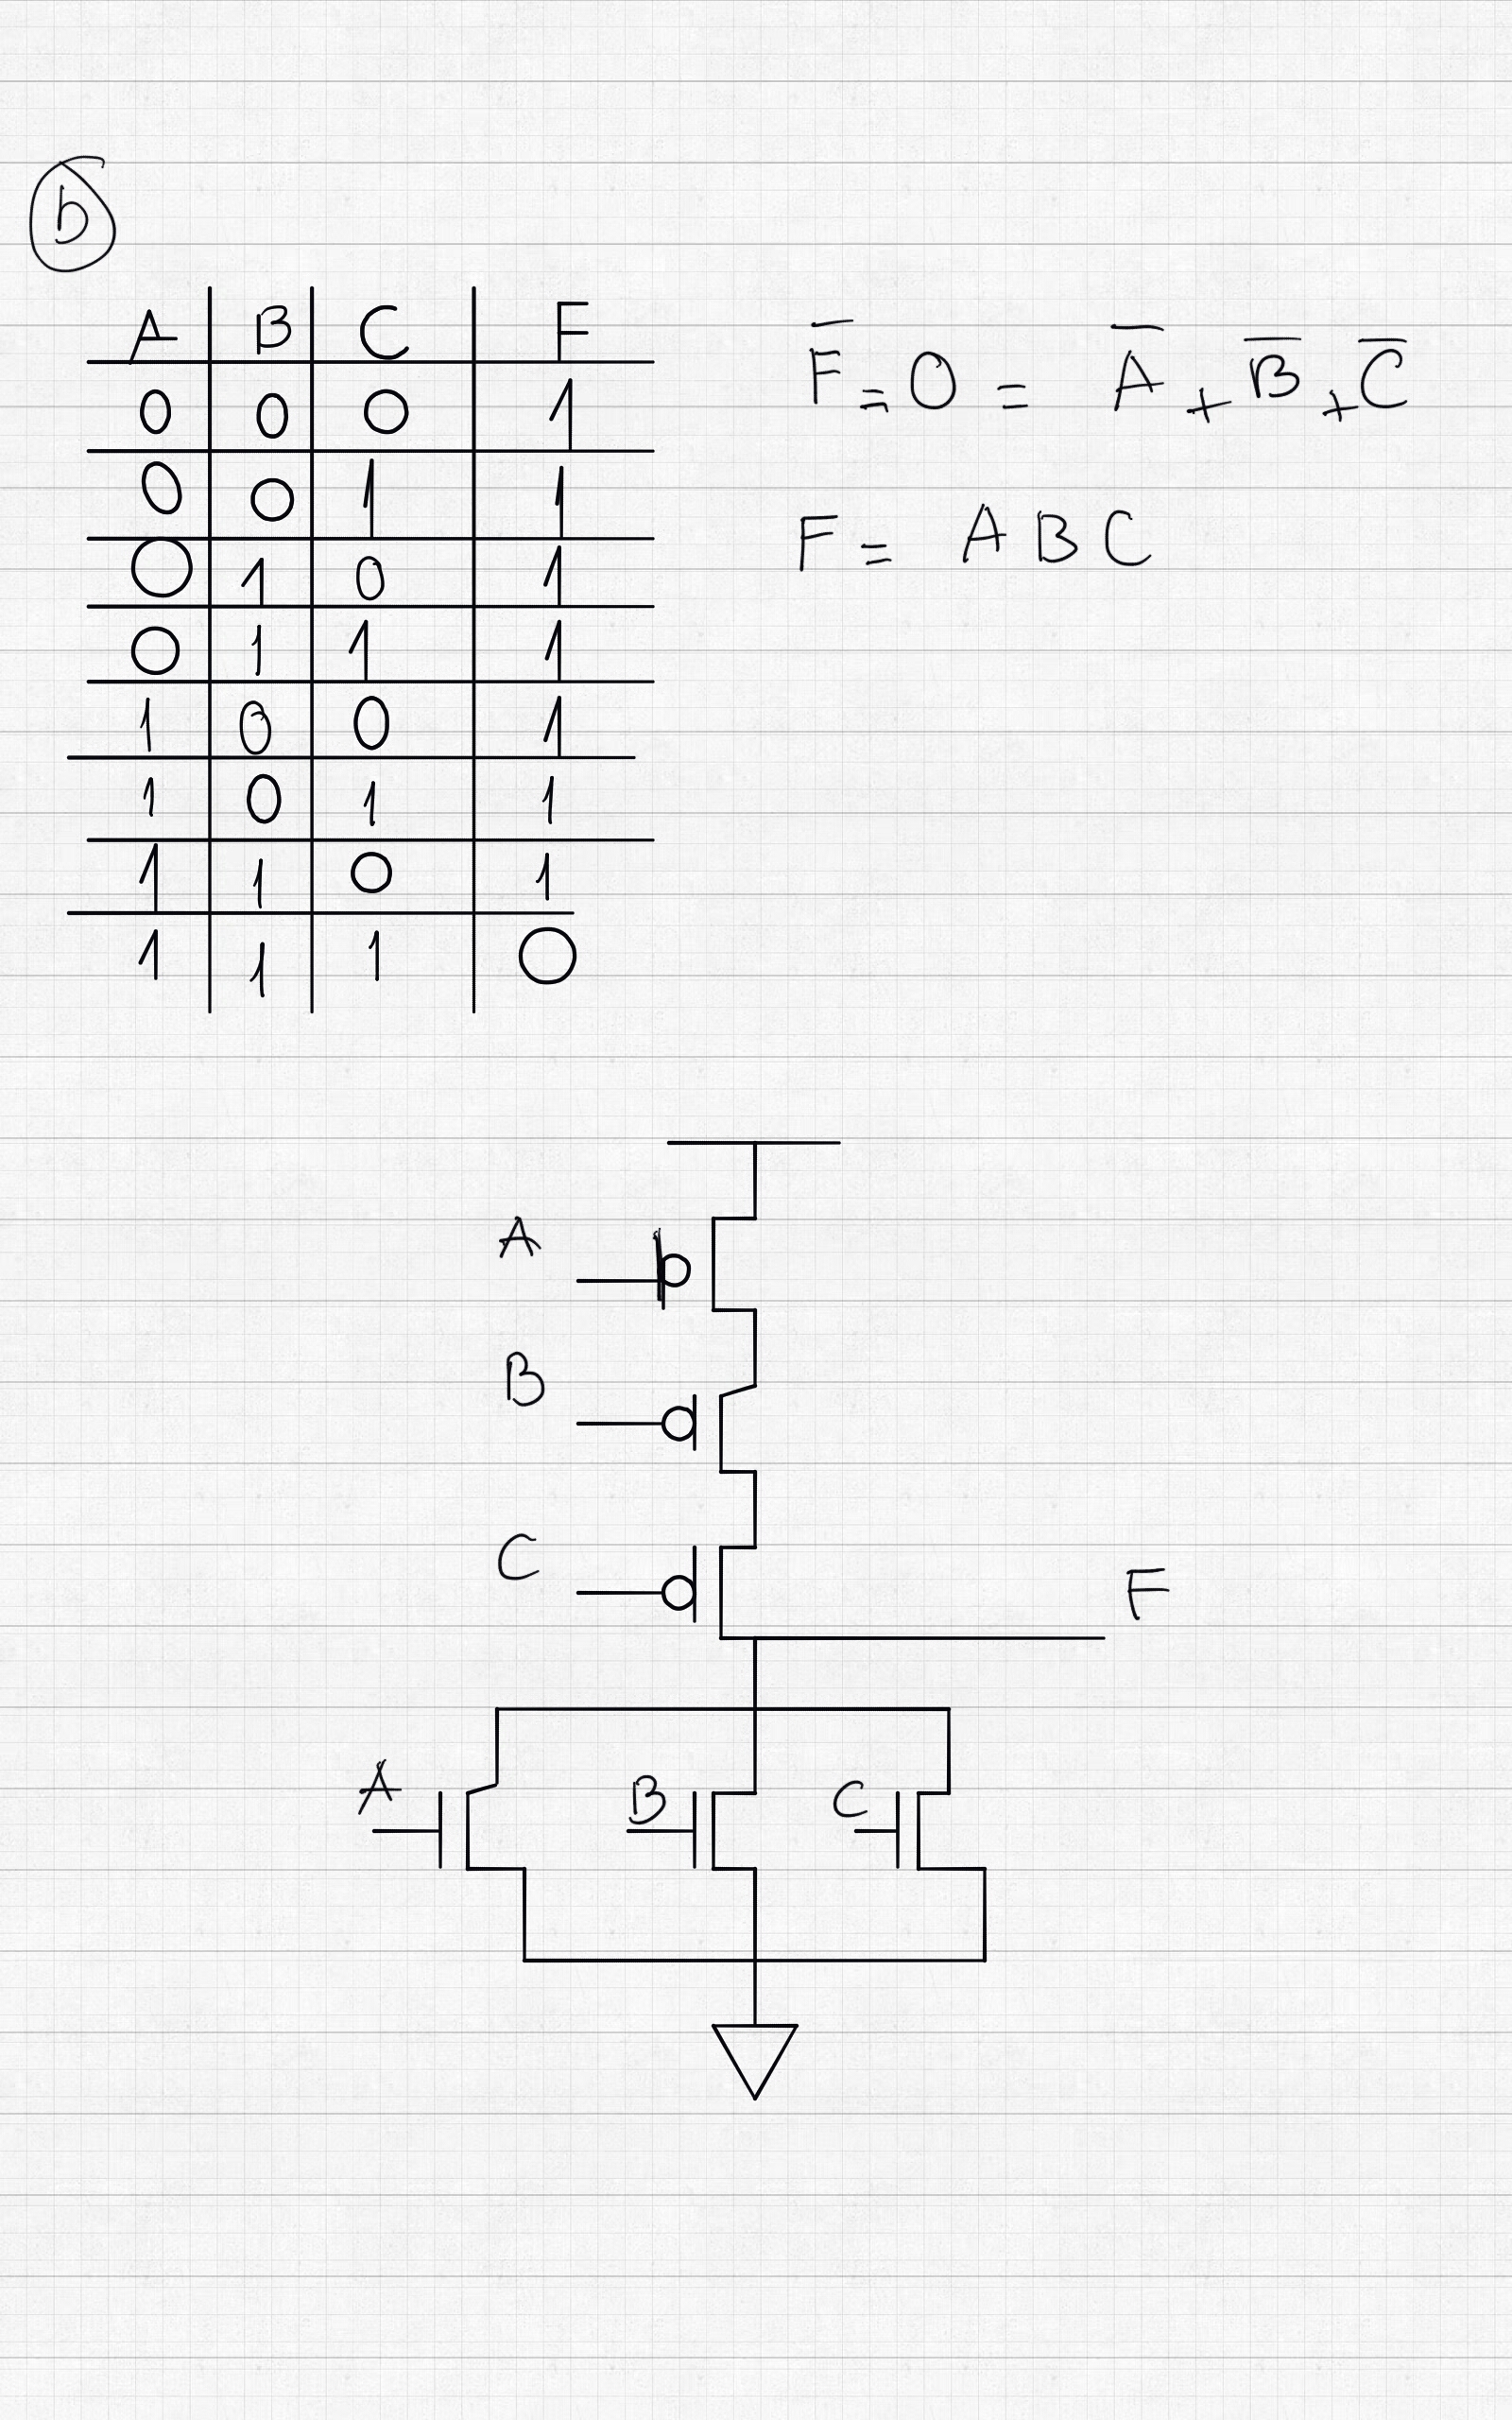 b
A B C F
0 0 0 1
0 0 1 1
0 1 0 1
0 1 1 1
1 0 0 1
1 0 1 1
1 1 0 1
1 1 1 0
F̅ = 0 = A̅ + B̅ + C̅
F = A B C
A
B
C
F
A B C